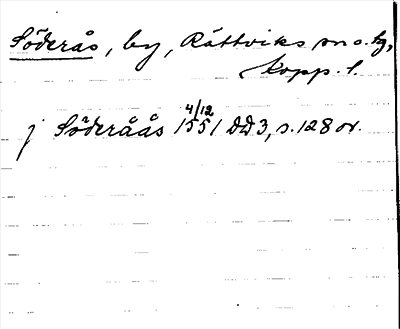 Söderås, by, Rättviks sn o. tg,
Kopp. l.
4/12
j Söderåås 1551 DD3, s. 128 or.